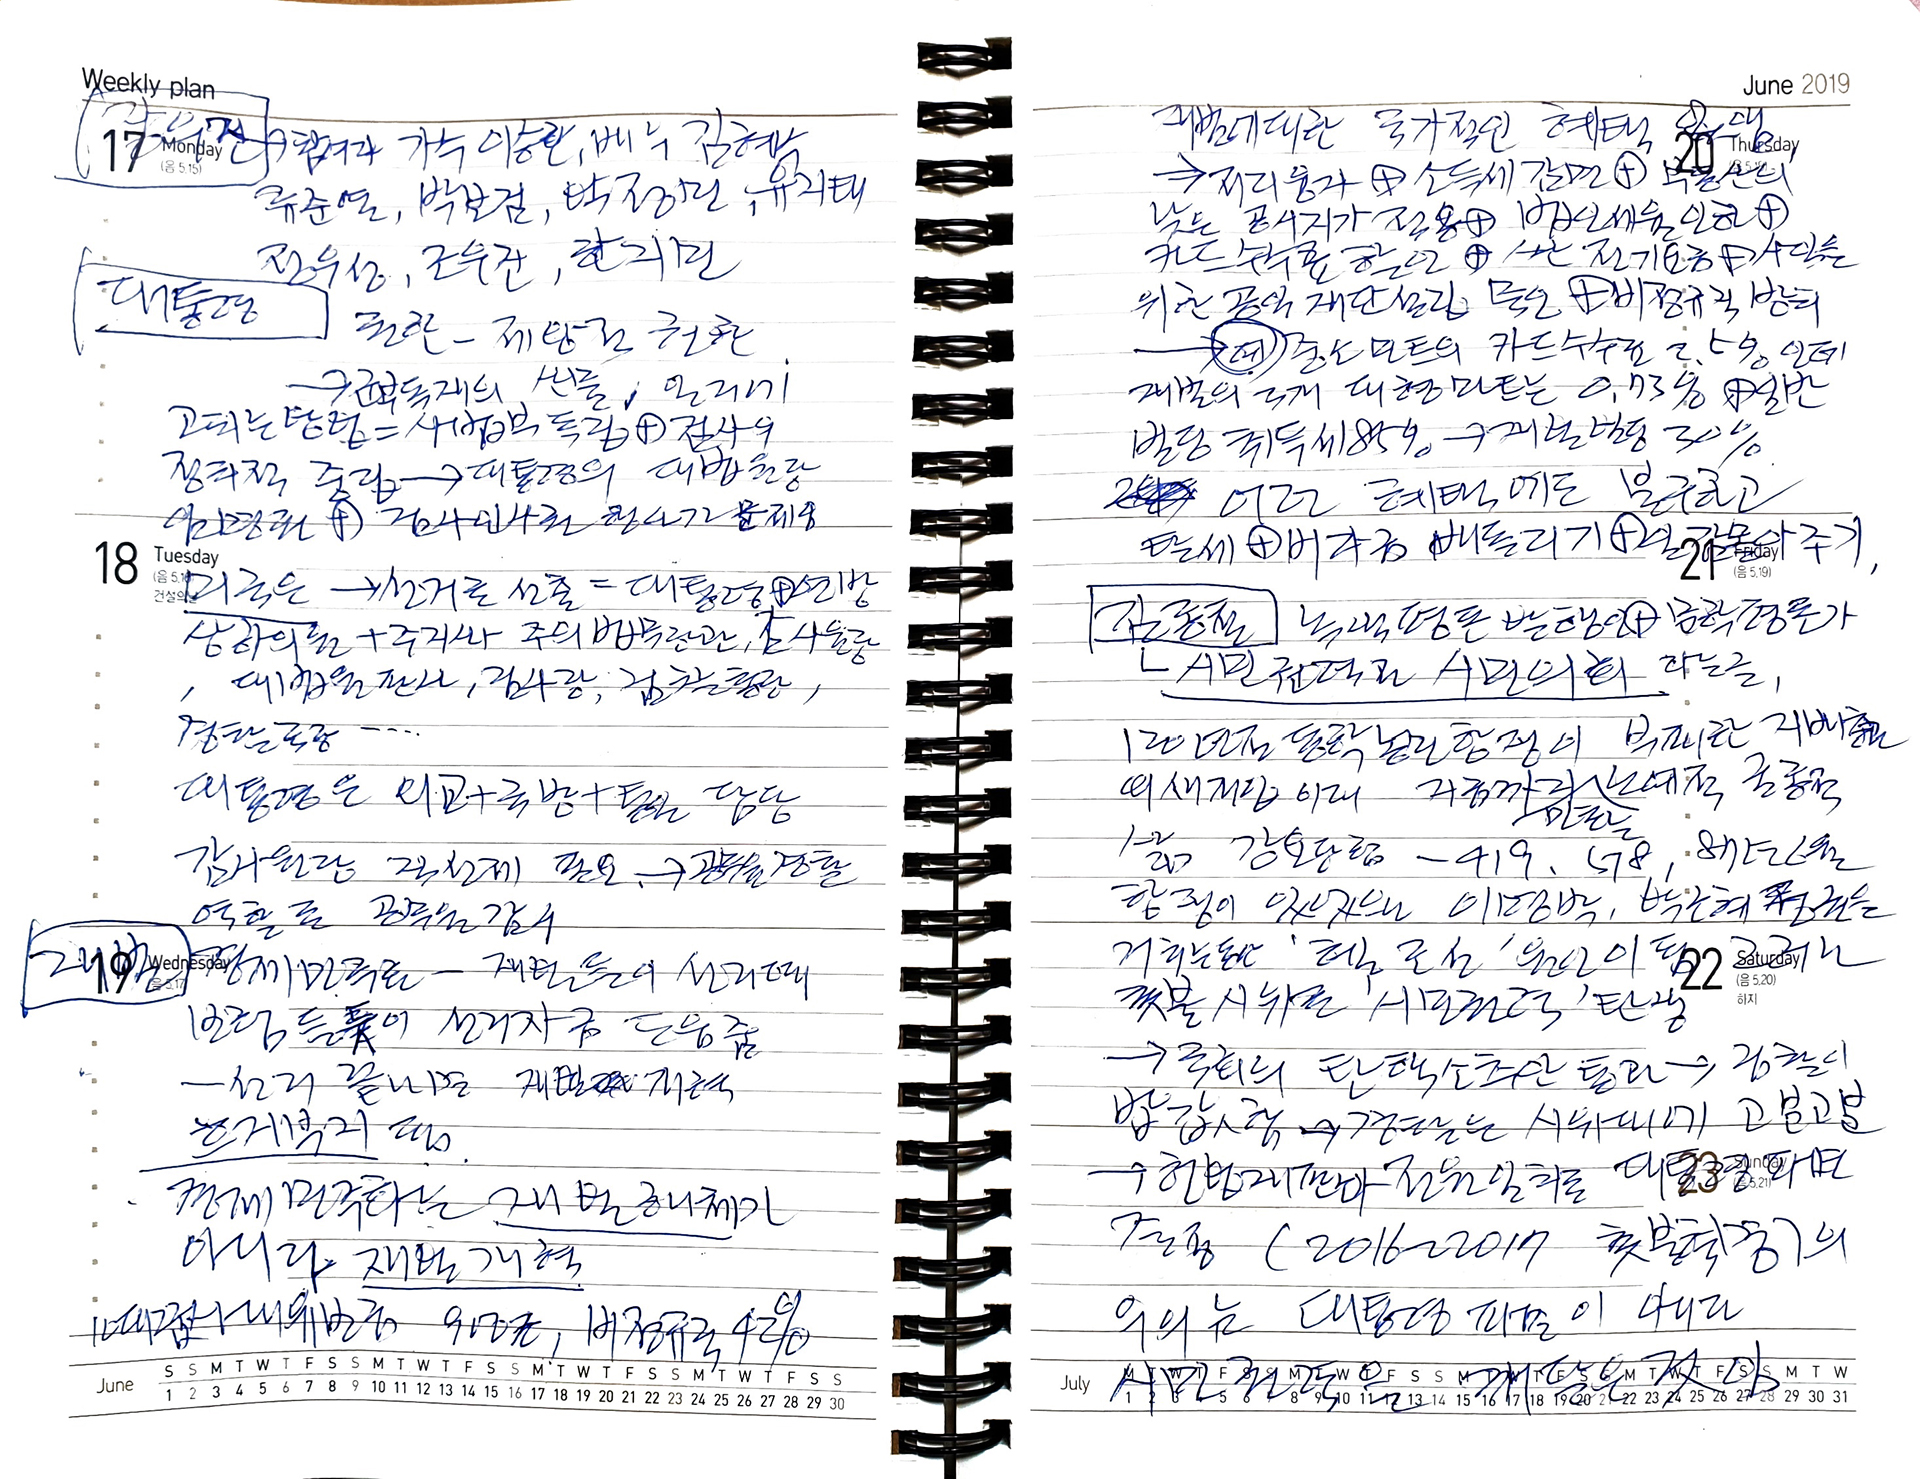 Weekly plan
17 Monday
(음 5.15)
가수 이승환, 배우 김혜수
류준열, 박보검, 박정민, 유지태
정우성, 조우진, 한지민
대통령
권한 - 제왕적 권한
→ 독재의 산물,
탄핵 = 사법부 독립 ⊕ 검사의
정치적 중립 → 대통령의 대법원장
임명권 ⊕ 검사인사권 문제
18 Tuesday
(음 5.16)
건설의날
미국은 → 선거로 선출 = 대통령 ⊕ 지방
상하의원 + 주지사 주의 법무장관, 감사원장
, 대법원판사, 검사장, 검찰총장,
경찰국장 ····
대통령은 외교+국방+통일 담당
감사원장 직선제 필요 → 공무원경찰
역할로 공무원감시
19 Wednesday
(음 5.17)
재벌 경제민주화 - 재벌들이 선거때
선거자금 도움줌
- 선거 끝나면 재벌
됨.
경제민주화는 재벌해체가
아니다. 재벌개혁
10대그룹 사내유보금 비정규직 42%
June
S S M T W T F S S M T W T F S S M T W T F S S M T W T F S S
1 2 3 4 5 6 7 8 9 10 11 12 13 14 15 16 17 18 19 20 21 22 23 24 25 26 27 28 29 30
June 2019
재벌에대한 국가적인 혜택
20 Thursday
→ 저리융자 ⊕ 소득세감면 ⊕ 부동산의
낮은 공시지가 적용 ⊕ 법인세율인하 ⊕
카드 수수료 할인 ⊕ 싼 전기요금 ⊕
위한 공익재단설립 묵인 ⊕ 비정규직 방치
→ 예) 중소마트의 카드수수료 2.5% 인데
재벌의 3개 대형마트는 0.73% ⊕ 일반
빌딩 취득세85% → 재벌빌딩 30%
이런 혜택에도 불구하고
탈세 ⊕ 비자금 빼돌리기 ⊕ 일감몰아주기,
21 Friday
(음 5.19)
김종철 녹색평론 발행인 ⊕ 문학평론가
ㄴ 시민권력과 시민의회 라는글,
120년전 동학농민항쟁이 부패한 지배층과
외세개입 이래 지금까지 노예적 굴종적
민중들
삶 강요당함 - 419, 518, 87년 6월
항쟁이 있었으나 이명박, 박근혜 정권을
거치는동안 '헬조선' 유행이 됨 그러나
22 Saturday
(음 5.20)
하지
촛불시위로 '시민권력' 탄생
→ 국회의 탄핵소추안 통과 → 검찰이
박 → 경찰은 시위대에 고분고분
23 Sunday
(음 5.21)
→ 헌법재판관 전원일치로 대통령 파면
결정 (2016~2017 촛불혁명)의
의의는 대통령 파면이 아니라
시민권력을 깨달은 것이다
July
M T W T F S S M T W T F S S M T W T F S S M T W T F S S M T W
1 2 3 4 5 6 7 8 9 10 11 12 13 14 15 16 17 18 19 20 21 22 23 24 25 26 27 28 29 30 31